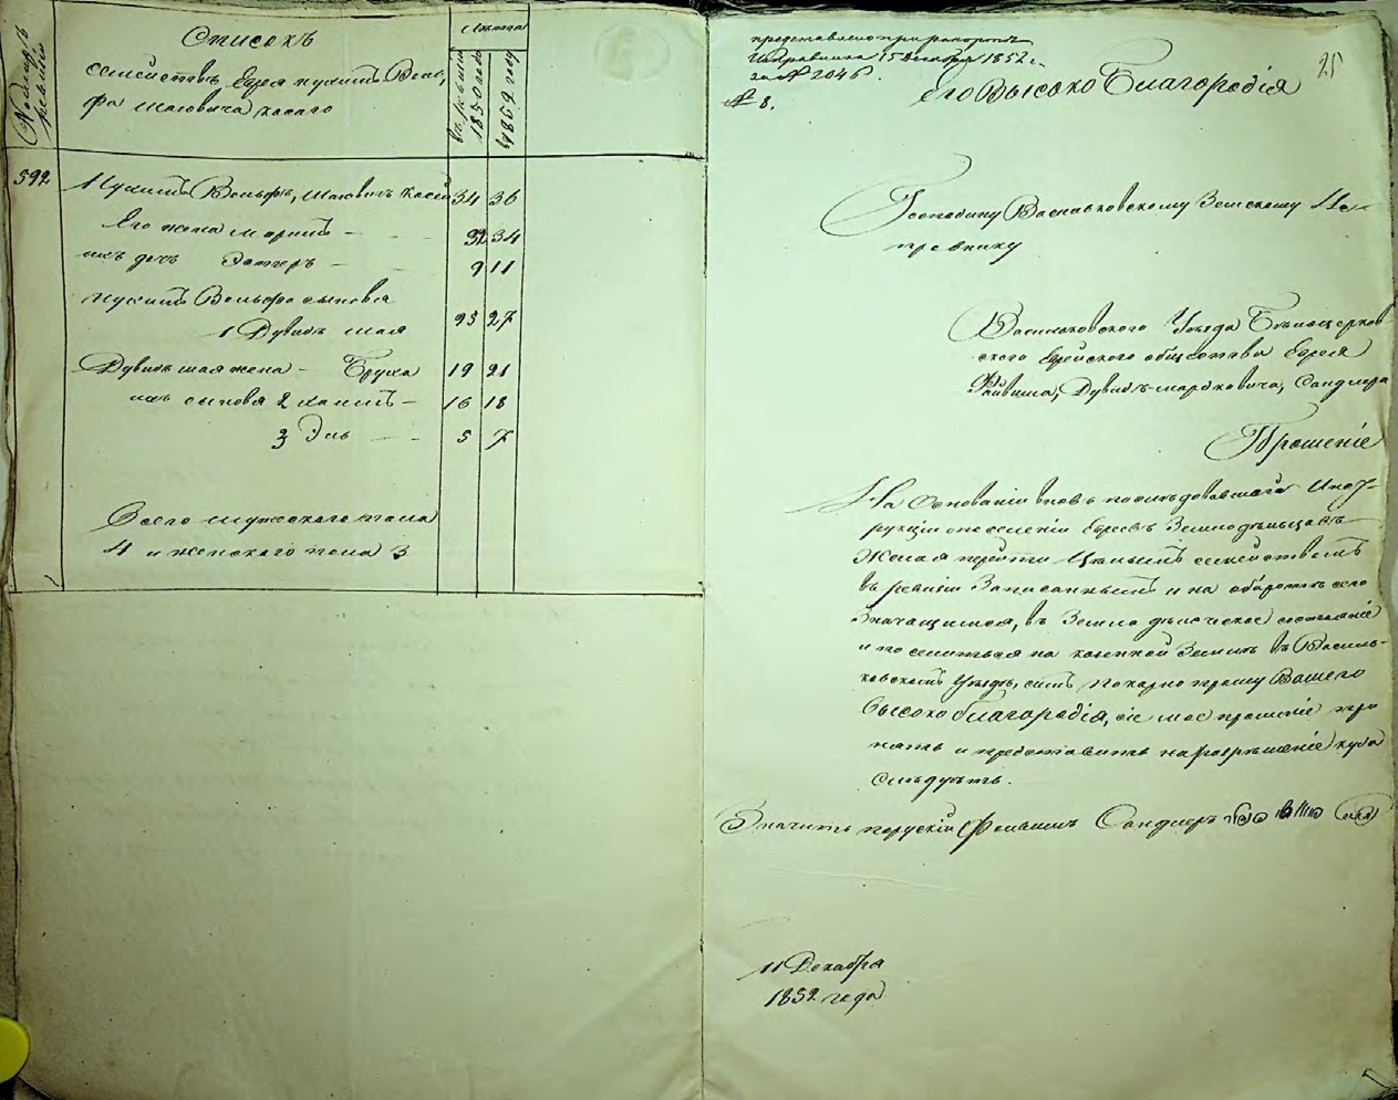 Номеръ ревизіи
Списокъ
семейства Еврея Нухима Воль-
фа Шаовича Касаго
Лѣта
въ ревизіи 1850 года
въ 1852 году
592
Нухимъ Вольфъ, Шаовичъ Касій 34 36
Его жена Маримъ - - 32 34
ихъ дочь Эстеръ - - 9 11
Нухимъ Вольфа сыновья
1 Дувидъ Шая 25 27
Дувидъ Шая жена - Бруха 19 21
ихъ сыновья 2 Хаимъ - 16 18
3 Эль - - 5 7
Всего мужескаго пола
4 и женскаго пола 3
представлено при рапортѣ
Исправника 15 Декабря 1852 г.
за № 2046.
№ 8.
25
Его Высоко Благородія
Господину Васильковскому Земскому Ис-
правнику
Васильковского Уѣзда Бѣлоцерков-
ского Еврейского общества Еврея
Файвиша, Дувидъ-Мардковича, Сандлера
Прошеніе
На Основаніи вновь послѣдовавшаго Инст-
рукціи о поселеніи Евреевъ Земледѣльцавъ
Желая перейти Цѣлымъ семействомъ
въ ревизіи Записаннымъ и на оборотѣ сего
Значащимся, въ Земледѣльческое состояніе
и поселиться на казенной Землѣ въ Василь-
ковскомъ Уѣздѣ, симъ Покорно прошу Вашего
Высоко благородія, сіе мое прошеніе при
нять и представить на разрѣшеніе куда
Слѣдуетъ.
Значитъ поруски Файвишъ Сандлеръ
11 Декабря
1852 года